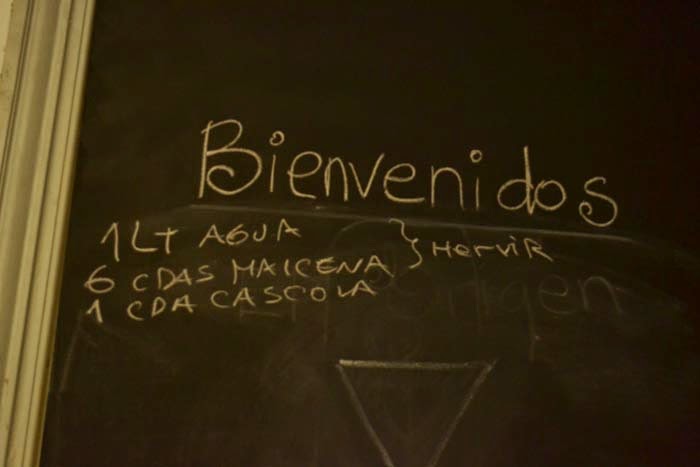 Bienvenidos
1 Lt AGUA } HerviR
6 CDAS MAICENA
1 CDA CASCOLA